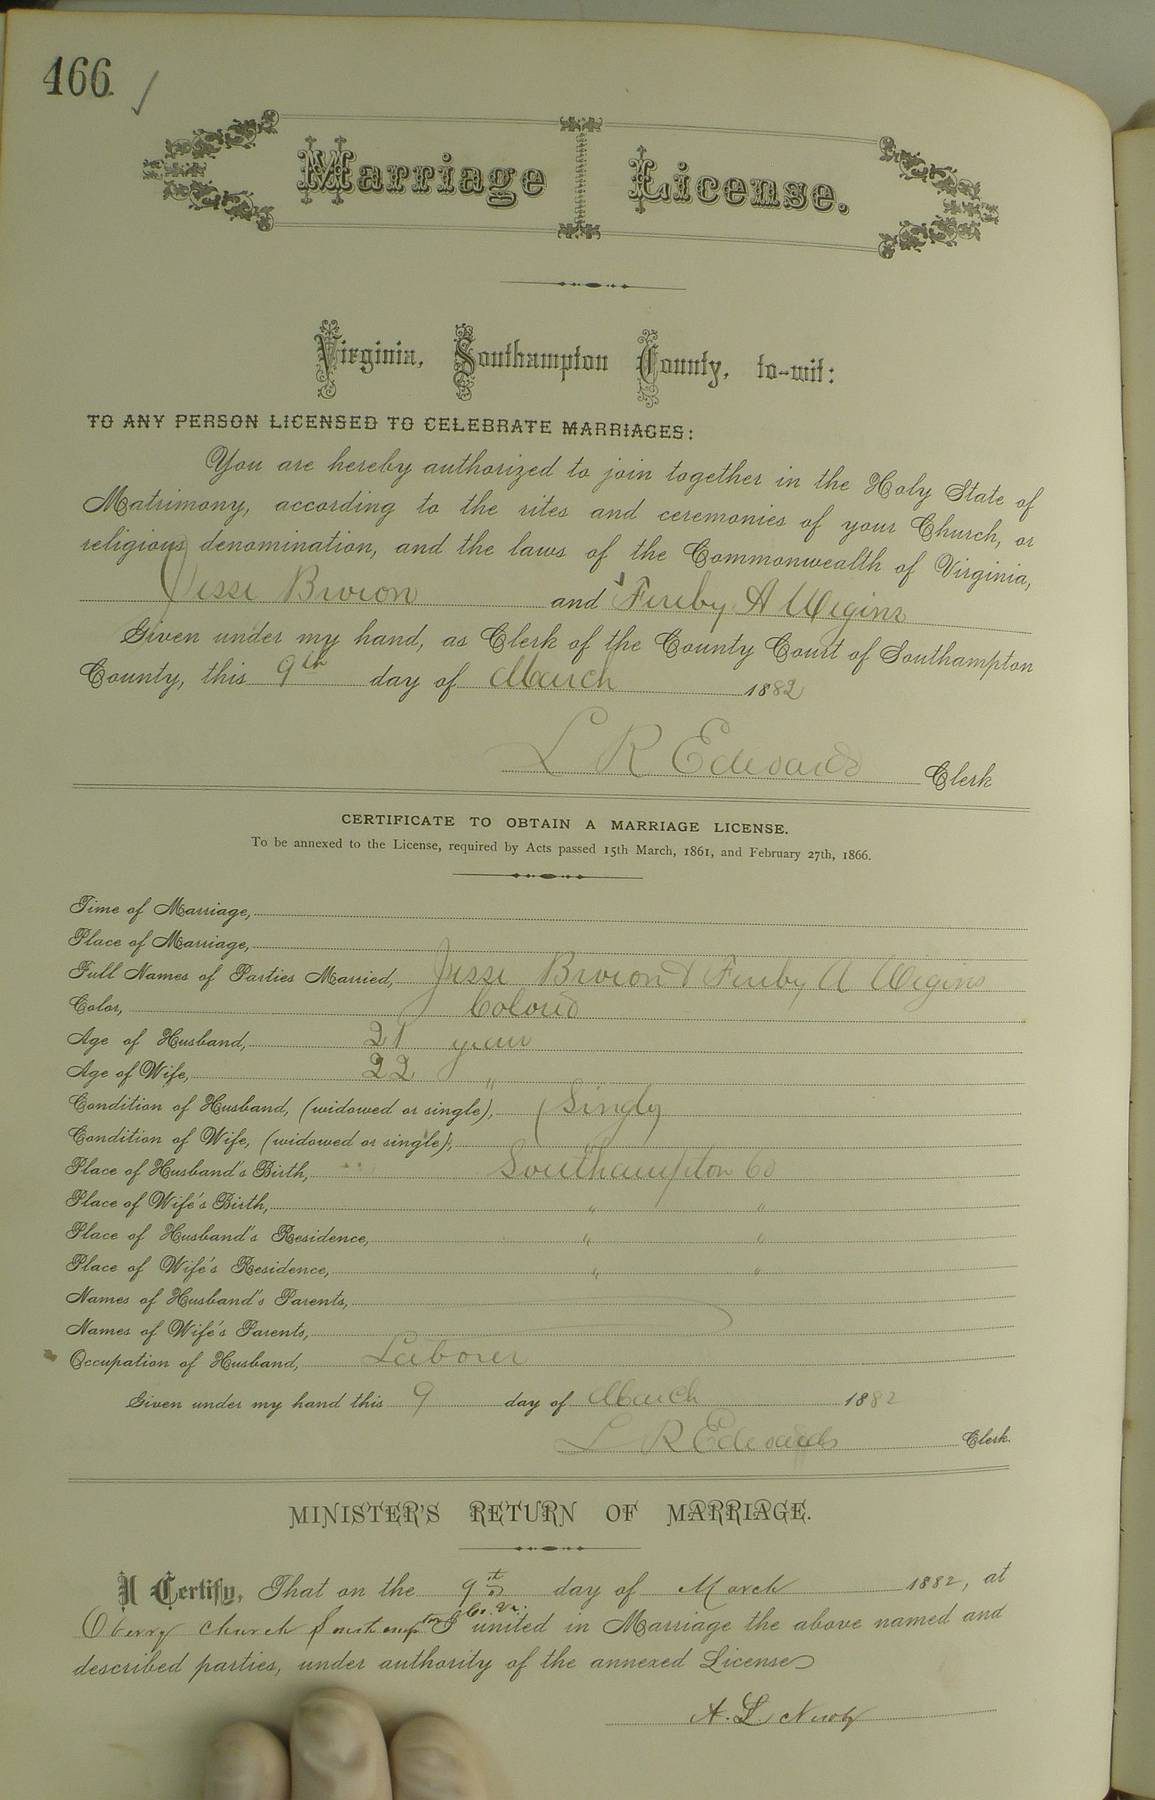 466
Marriage License.
Virginia, Southampton County, to-wit:
TO ANY PERSON LICENSED TO CELEBRATE MARRIAGES:
You are hereby authorized to join together in the Holy State of
Matrimony, according to the rites and ceremonies of your Church, or
religious denomination, and the laws of the Commonwealth of Virginia,
Jesse Brown and Fereby A Wigins
Given under my hand, as Clerk of the County Court of Southampton
County, this 9th day of March 1882
L R Edwards Clerk
CERTIFICATE TO OBTAIN A MARRIAGE LICENSE.
To be annexed to the License, required by Acts passed 15th March, 1861, and February 27th, 1866.
Time of Marriage,
Place of Marriage,
Full Names of Parties Married, Jesse Brown & Fereby A Wigins
Color, Colored
Age of Husband, 21 years
Age of Wife, 22 "
Condition of Husband, (widowed or single), Single
Condition of Wife, (widowed or single), "
Place of Husband's Birth, Southampton Co
Place of Wife's Birth, " "
Place of Husband's Residence, " "
Place of Wife's Residence, " "
Names of Husband's Parents,
Names of Wife's Parents,
Occupation of Husband, Laborer
Given under my hand this 9 day of March 1882
L R Edwards Clerk.
MINISTER'S RETURN OF MARRIAGE.
I Certify, That on the 9th day of March 1882, at
Oberry church Southampton Co. Va. I united in Marriage the above named and
described parties, under authority of the annexed License
A. L. Newby